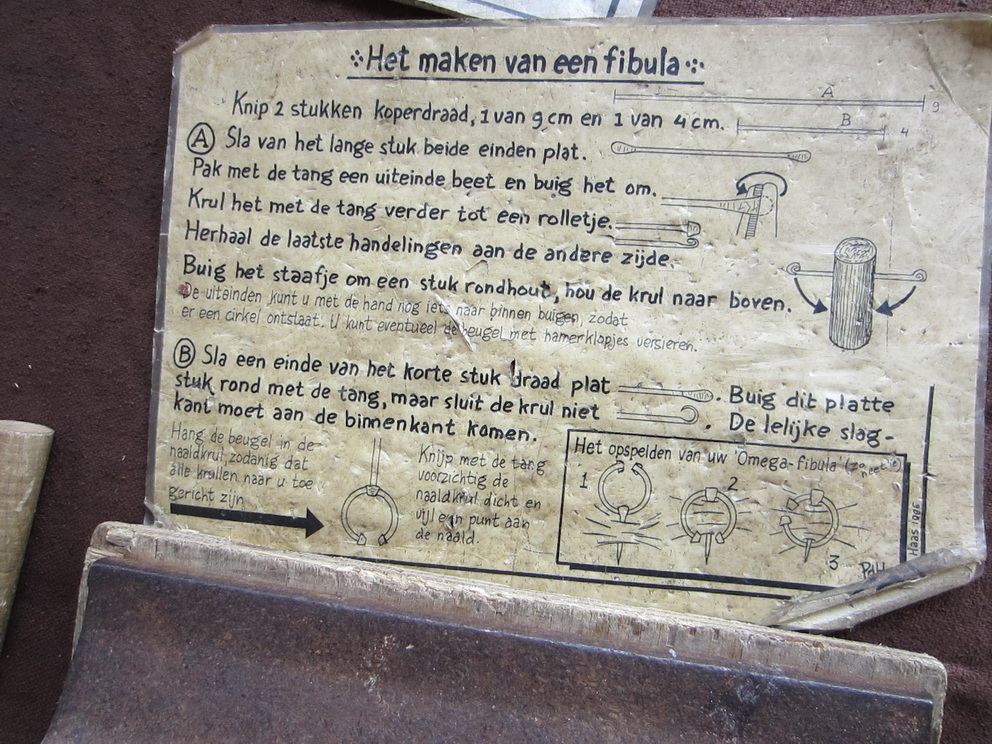 Het maken van een fibula
Knip 2 stukken koperdraad, 1 van 9 cm en 1 van 4 cm.
A
9
B
4
A Sla van het lange stuk beide einden plat.
Pak met de tang een uiteinde beet en buig het om.
Krul het met de tang verder tot een rolletje.
Herhaal de laatste handelingen aan de andere zijde.
Buig het staafje om een stuk rondhout, hou de krul naar boven.
De uiteinden kunt u met de hand nog iets naar binnen buigen, zodat
er een cirkel ontstaat. U kunt eventueel de beugel met hamerklopjes versieren.
B Sla een einde van het korte stuk draad plat. Buig dit platte
stuk rond met de tang, maar sluit de krul niet. De lelijke slag-
kant moet aan de binnenkant komen.
Hang de beugel in de
naaldkrul, zodanig dat
alle krullen naar u toe
gericht zijn
Knijp met de tang
voorzichtig de
naaldkrul dicht en
vijl een punt aan
de naald.
Het opspelden van uw 'Omega-fibula' (zo heet ie)
1
2
3
PdH
Haas 1996